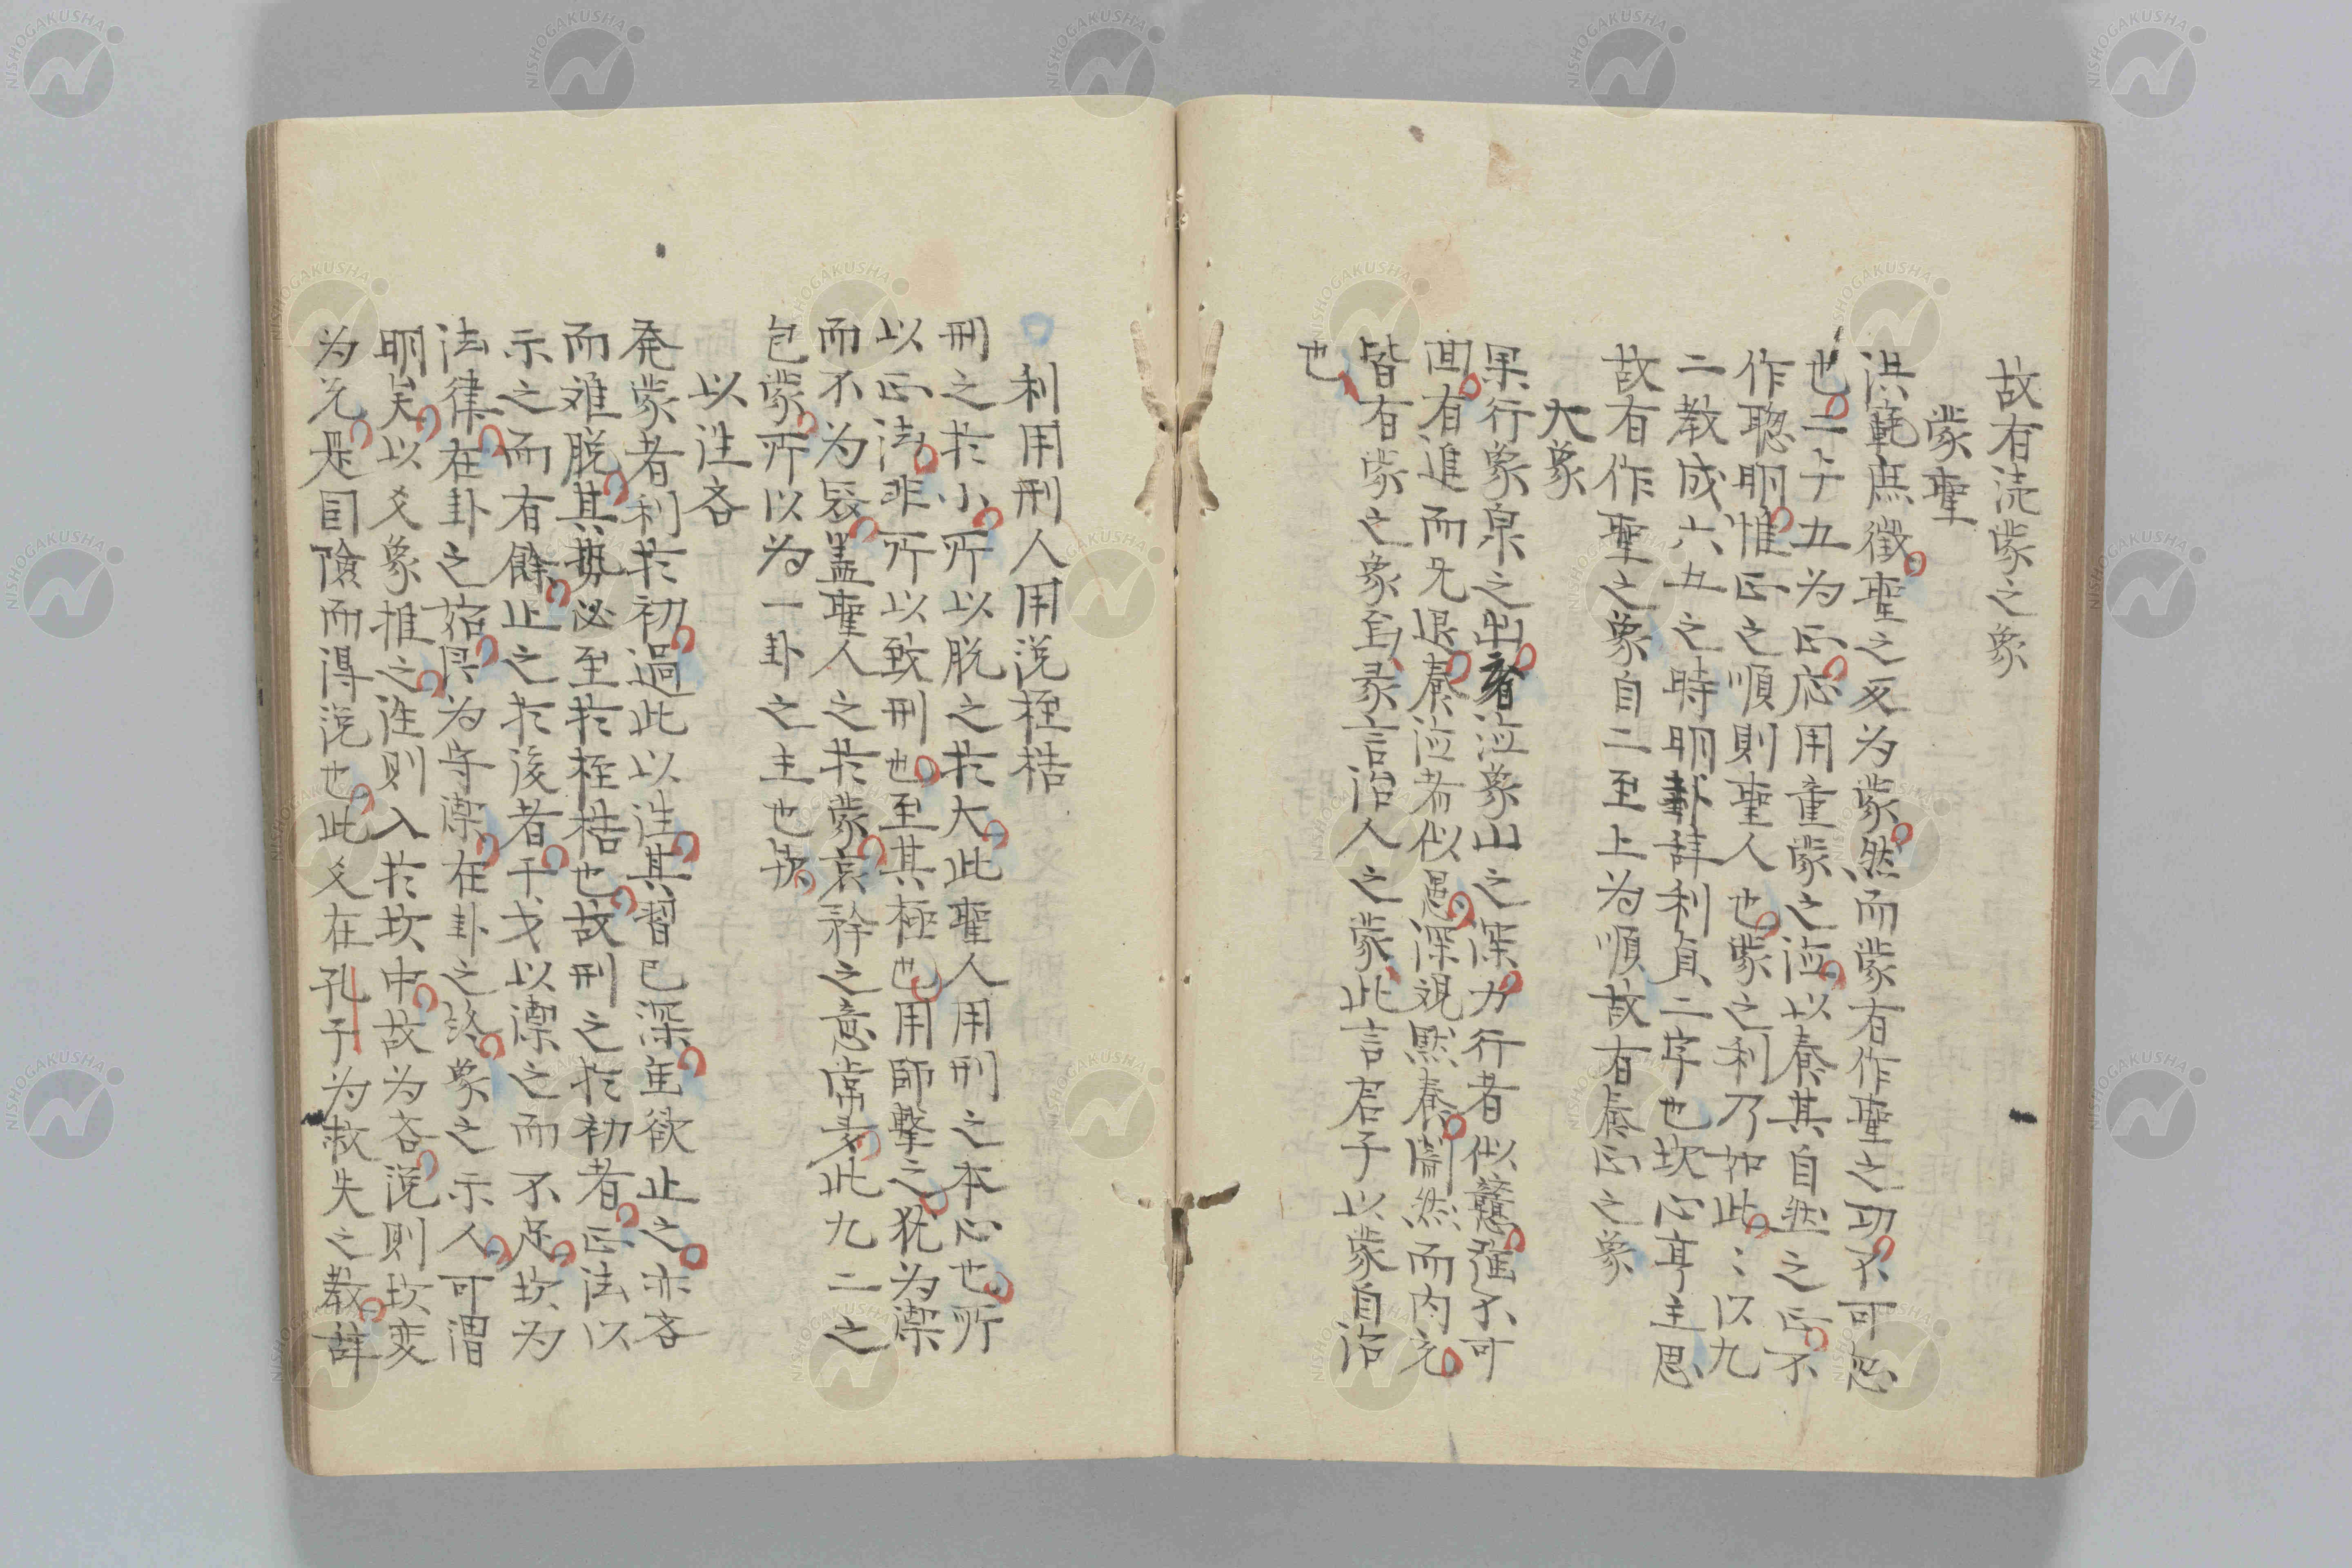 故有涜蒙之象
蒙聖
洪範庶徴聖之反为蒙然而蒙有作聖之功不可忽
也二与五为正応用童蒙之涖以養其自然之正不
作聡明惟正之順則聖人也蒙之利乃如此〻以九
二教成六五之時明卦辞利貞二字也坎心亨主思
故有作聖之象自二至上为順故有養正之象
大象
果行象泉之出者涖象山之深力行者似戇進不可
回有進而旡退養涖者似愚深視黙養闇然而内充
皆有蒙之象自彖言治人之蒙此言君子以蒙自治
也
利用刑人用説桎梏
刑之於小所以脱之於大此聖人用刑之本心也所
以正法非所以致刑也至其極也用師擊之犹为禦
而不为寇盖聖人之於蒙哀矜之意常多此九二之
包蒙所以为一卦之主也
以往吝
発蒙者利於初過此以往其習已深雖欲止之亦吝
而难脱其勢必至於桎梏也故刑之於初者正法以
示之而有餘止之於後者干戈以禦之而不足坎为
法律在卦之始艮为守禦在卦之終象之示人可謂
明矣以爻象推之往則入於坎中故为吝説則坎変
为兌是囙險而得説也此爻在孔子为救失之教辞